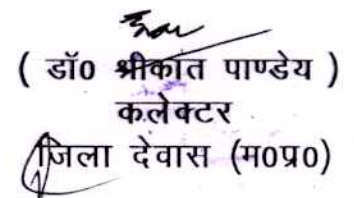 ( डॉ0 श्रीकांत पाण्डेय )
कलेक्टर
जिला देवास (म0प्र0)